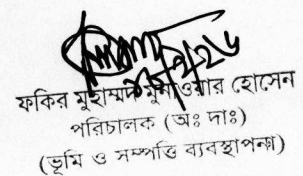 ফকির মুহাম্মদ মুনাওয়ার হোসেন
পরিচালক (অঃ দাঃ)
(ভূমি ও সম্পত্তি ব্যবস্থাপনা)